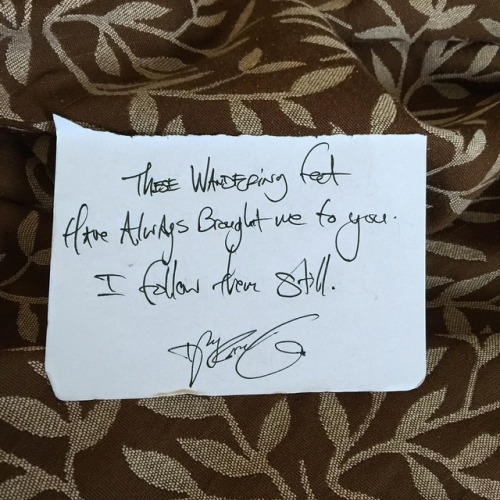 These Wandering feet
Have Always Brought me to you.
I follow them still.